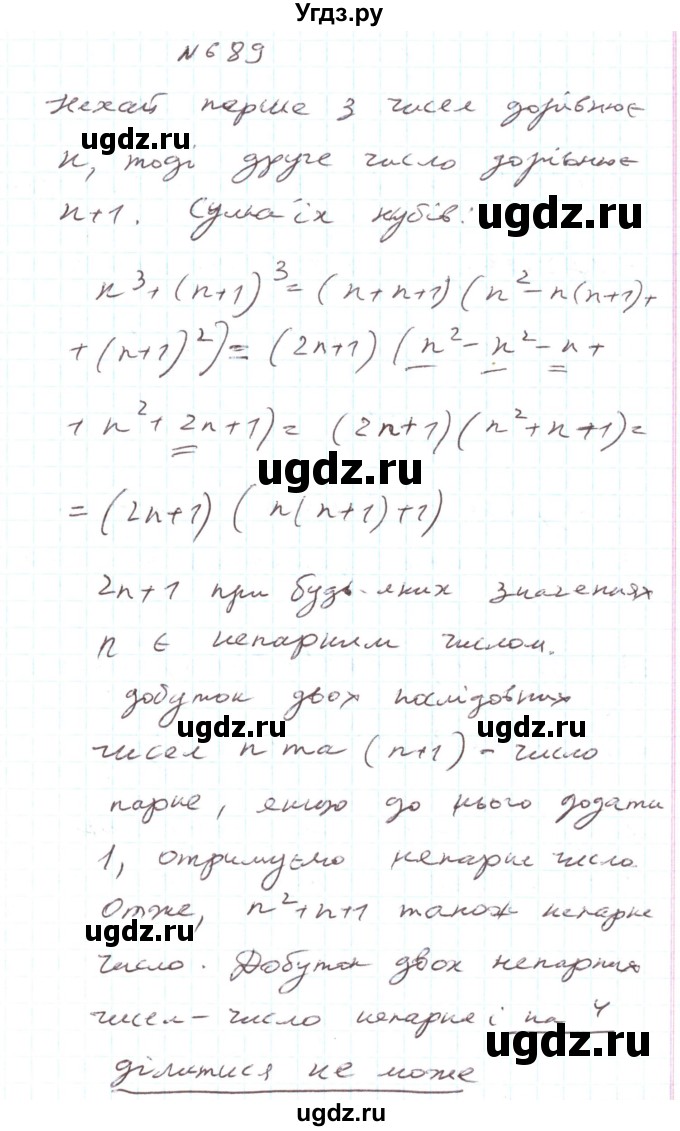 Угдз.ру
№689
Нехай перше з чисел дорівнює
n, тоді друге число дорівнює
ugdz.ru
n+1. Сума їх кубів:
ugdz.ru
n³+(n+1)³=(n+n+1)(n²-n(n+1)+
+(n+1)²)=(2n+1)(n²-n²-n+
+n²+2n+1)=(2n+1)(n²+n+1)=
ugdz.ru
=(2n+1)(n(n+1)+1)
2n+1 при будь-яких значеннях
n є непарним числом.
добуток двох послідовних
ugdz.ru
ugdz.ru
чисел n та (n+1) - число
парне, якщо до нього додати
1, отримуємо непарне число.
Отже, n²+n+1 також непарне
ugdz.ru
число. Добуток двох непарних
чисел - число непарне і на 4
ugdz.ru
ділитися не може
ugdz.ru